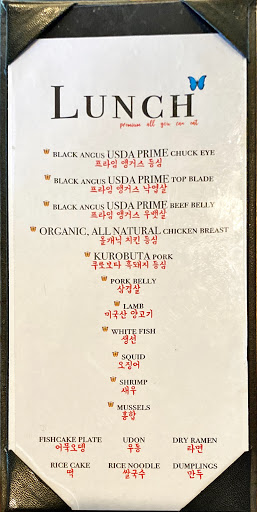 LUNCH
premium all you can eat
BLACK ANGUS USDA PRIME CHUCK EYE
프라임 앵거스 등심
BLACK ANGUS USDA PRIME TOP BLADE
프라임 앵거스 낙엽살
BLACK ANGUS USDA PRIME BEEF BELLY
프라임 앵거스 우뱃살
ORGANIC, ALL NATURAL CHICKEN BREAST
올개닉 치킨 등심
KUROBUTA PORK
쿠로보타 흑돼지 등심
PORK BELLY
삼겹살
LAMB
미국산 양고기
WHITE FISH
생선
SQUID
오징어
SHRIMP
새우
MUSSELS
홍합
FISHCAKE PLATE UDON DRY RAMEN
어묵오뎅 우동 라면
RICE CAKE RICE NOODLE DUMPLINGS
떡 쌀국수 만두